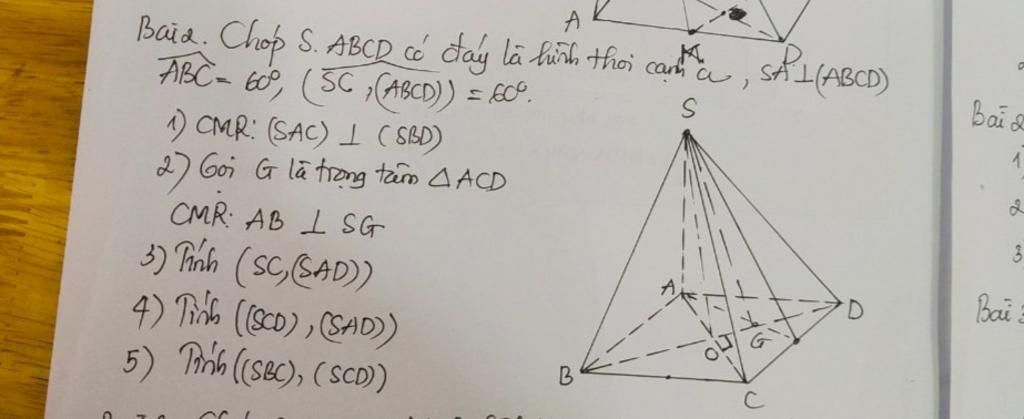 Bài 2. Chóp S. ABCD có đáy là hình thoi cạnh a, SA⊥(ABCD)
ABC = 60°, (SC, (ABCD)) = 60°.
1) CMR: (SAC) ⊥ (SBD)
2) Gọi G là trọng tâm △ACD
CMR: AB ⊥ SG
3) Tính (SC,(SAD))
4) Tính ((SCD), (SAD))
5) Tính ((SBC), (SCD))
A
M
D
S
A
D
O
G
B
C
Bài 2
1
2
3
Bài 3